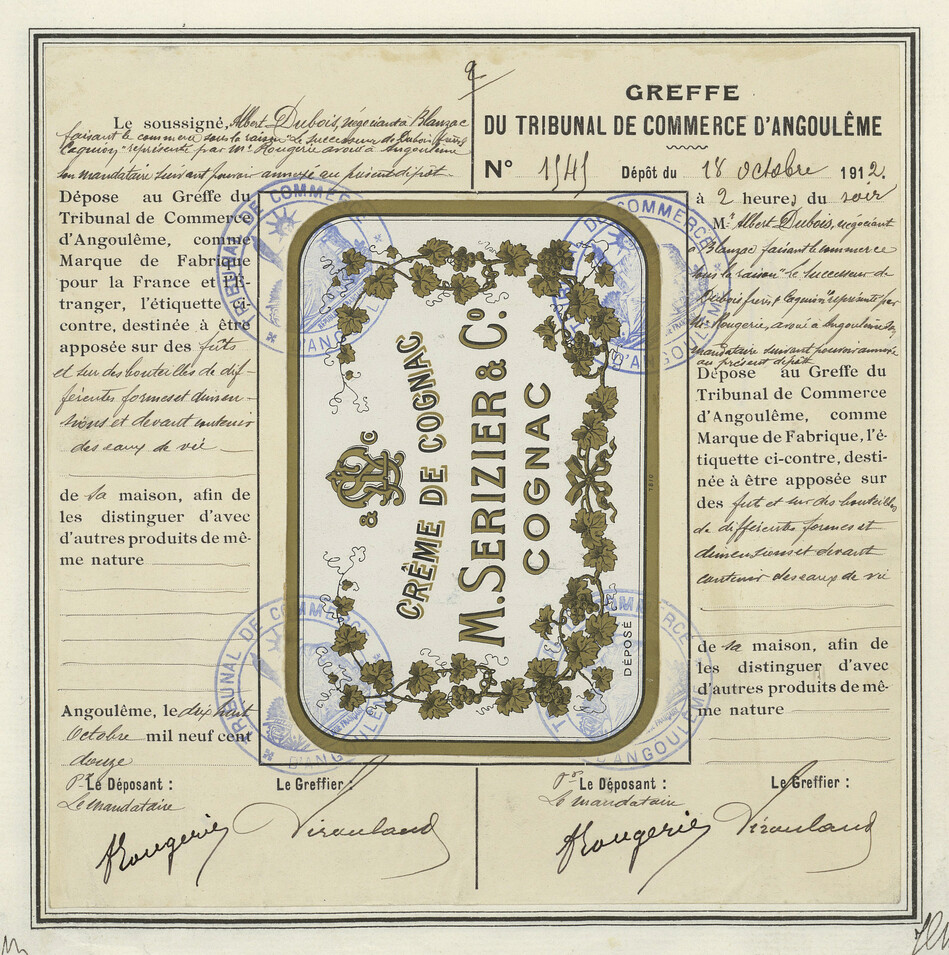 Le soussigné, Albert Dubois, négociant à Blanzac
faisant le commerce sous la raison "Le successeur de Dubois frères
Caquion" représenté par Me Rougerie avoué à Angoulême
son mandataire suivant pouvoir annexé au présent dépôt
Dépose au Greffe du
Tribunal de Commerce
d'Angoulême, comme
Marque de Fabrique
pour la France et l'É-
tranger, l'étiquette ci-
contre, destinée à être
apposée sur des fûts
et sur des bouteilles de dif-
férentes formes et dimen-
sions et devant contenir
des eaux de vie
de sa maison, afin de
les distinguer d'avec
d'autres produits de mê-
me nature
Angoulême, le dix huit
Octobre mil neuf cent
douze
Le Déposant :
Le mandataire
Rougerie
Le Greffier :
GREFFE
DU TRIBUNAL DE COMMERCE D'ANGOULÊME
N° 1545 Dépôt du 18 Octobre 1912.
à 2 heures du soir
Mr Albert Dubois, négociant
à Blanzac faisant le commerce
sous la raison "Le successeur de
Dubois frères & Caquion" représenté par
Me Rougerie, avoué à Angoulême son
mandataire suivant pouvoir annexé
au présent dépôt
Dépose au Greffe du
Tribunal de Commerce
d'Angoulême, comme
Marque de Fabrique, l'é-
tiquette ci-contre, desti-
née à être apposée sur
des fut et sur des bouteilles
de différentes formes et
dimensions et devant
contenir des eaux de vie
de sa maison, afin de
les distinguer d'avec
d'autres produits de mê-
me nature
Le Déposant :
Le mandataire
Rougerie
Le Greffier :
CRÊME DE COGNAC
M. SERIZIER & Co.
COGNAC
DÉPOSÉ
TRIBUNAL DE COMMERCE
D'ANGOULÊME
TRIBUNAL DE COMMERCE
D'ANGOULÊME
TRIBUNAL DE COMMERCE
D'ANGOULÊME
TRIBUNAL DE COMMERCE
D'ANGOULÊME